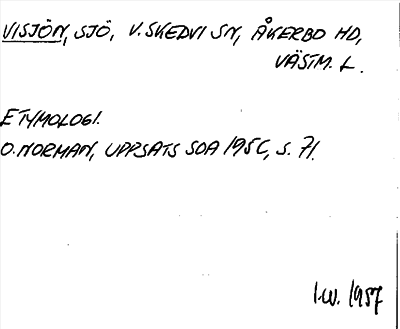 VISJÖN, SJÖ, V. SKEDVI SN, ÅKERBO HD,
VÄSTM. L.
ETYMOLOGI.
O. NORMAN, UPPSATS SOA 195C, S. 71.
I.W. 1957